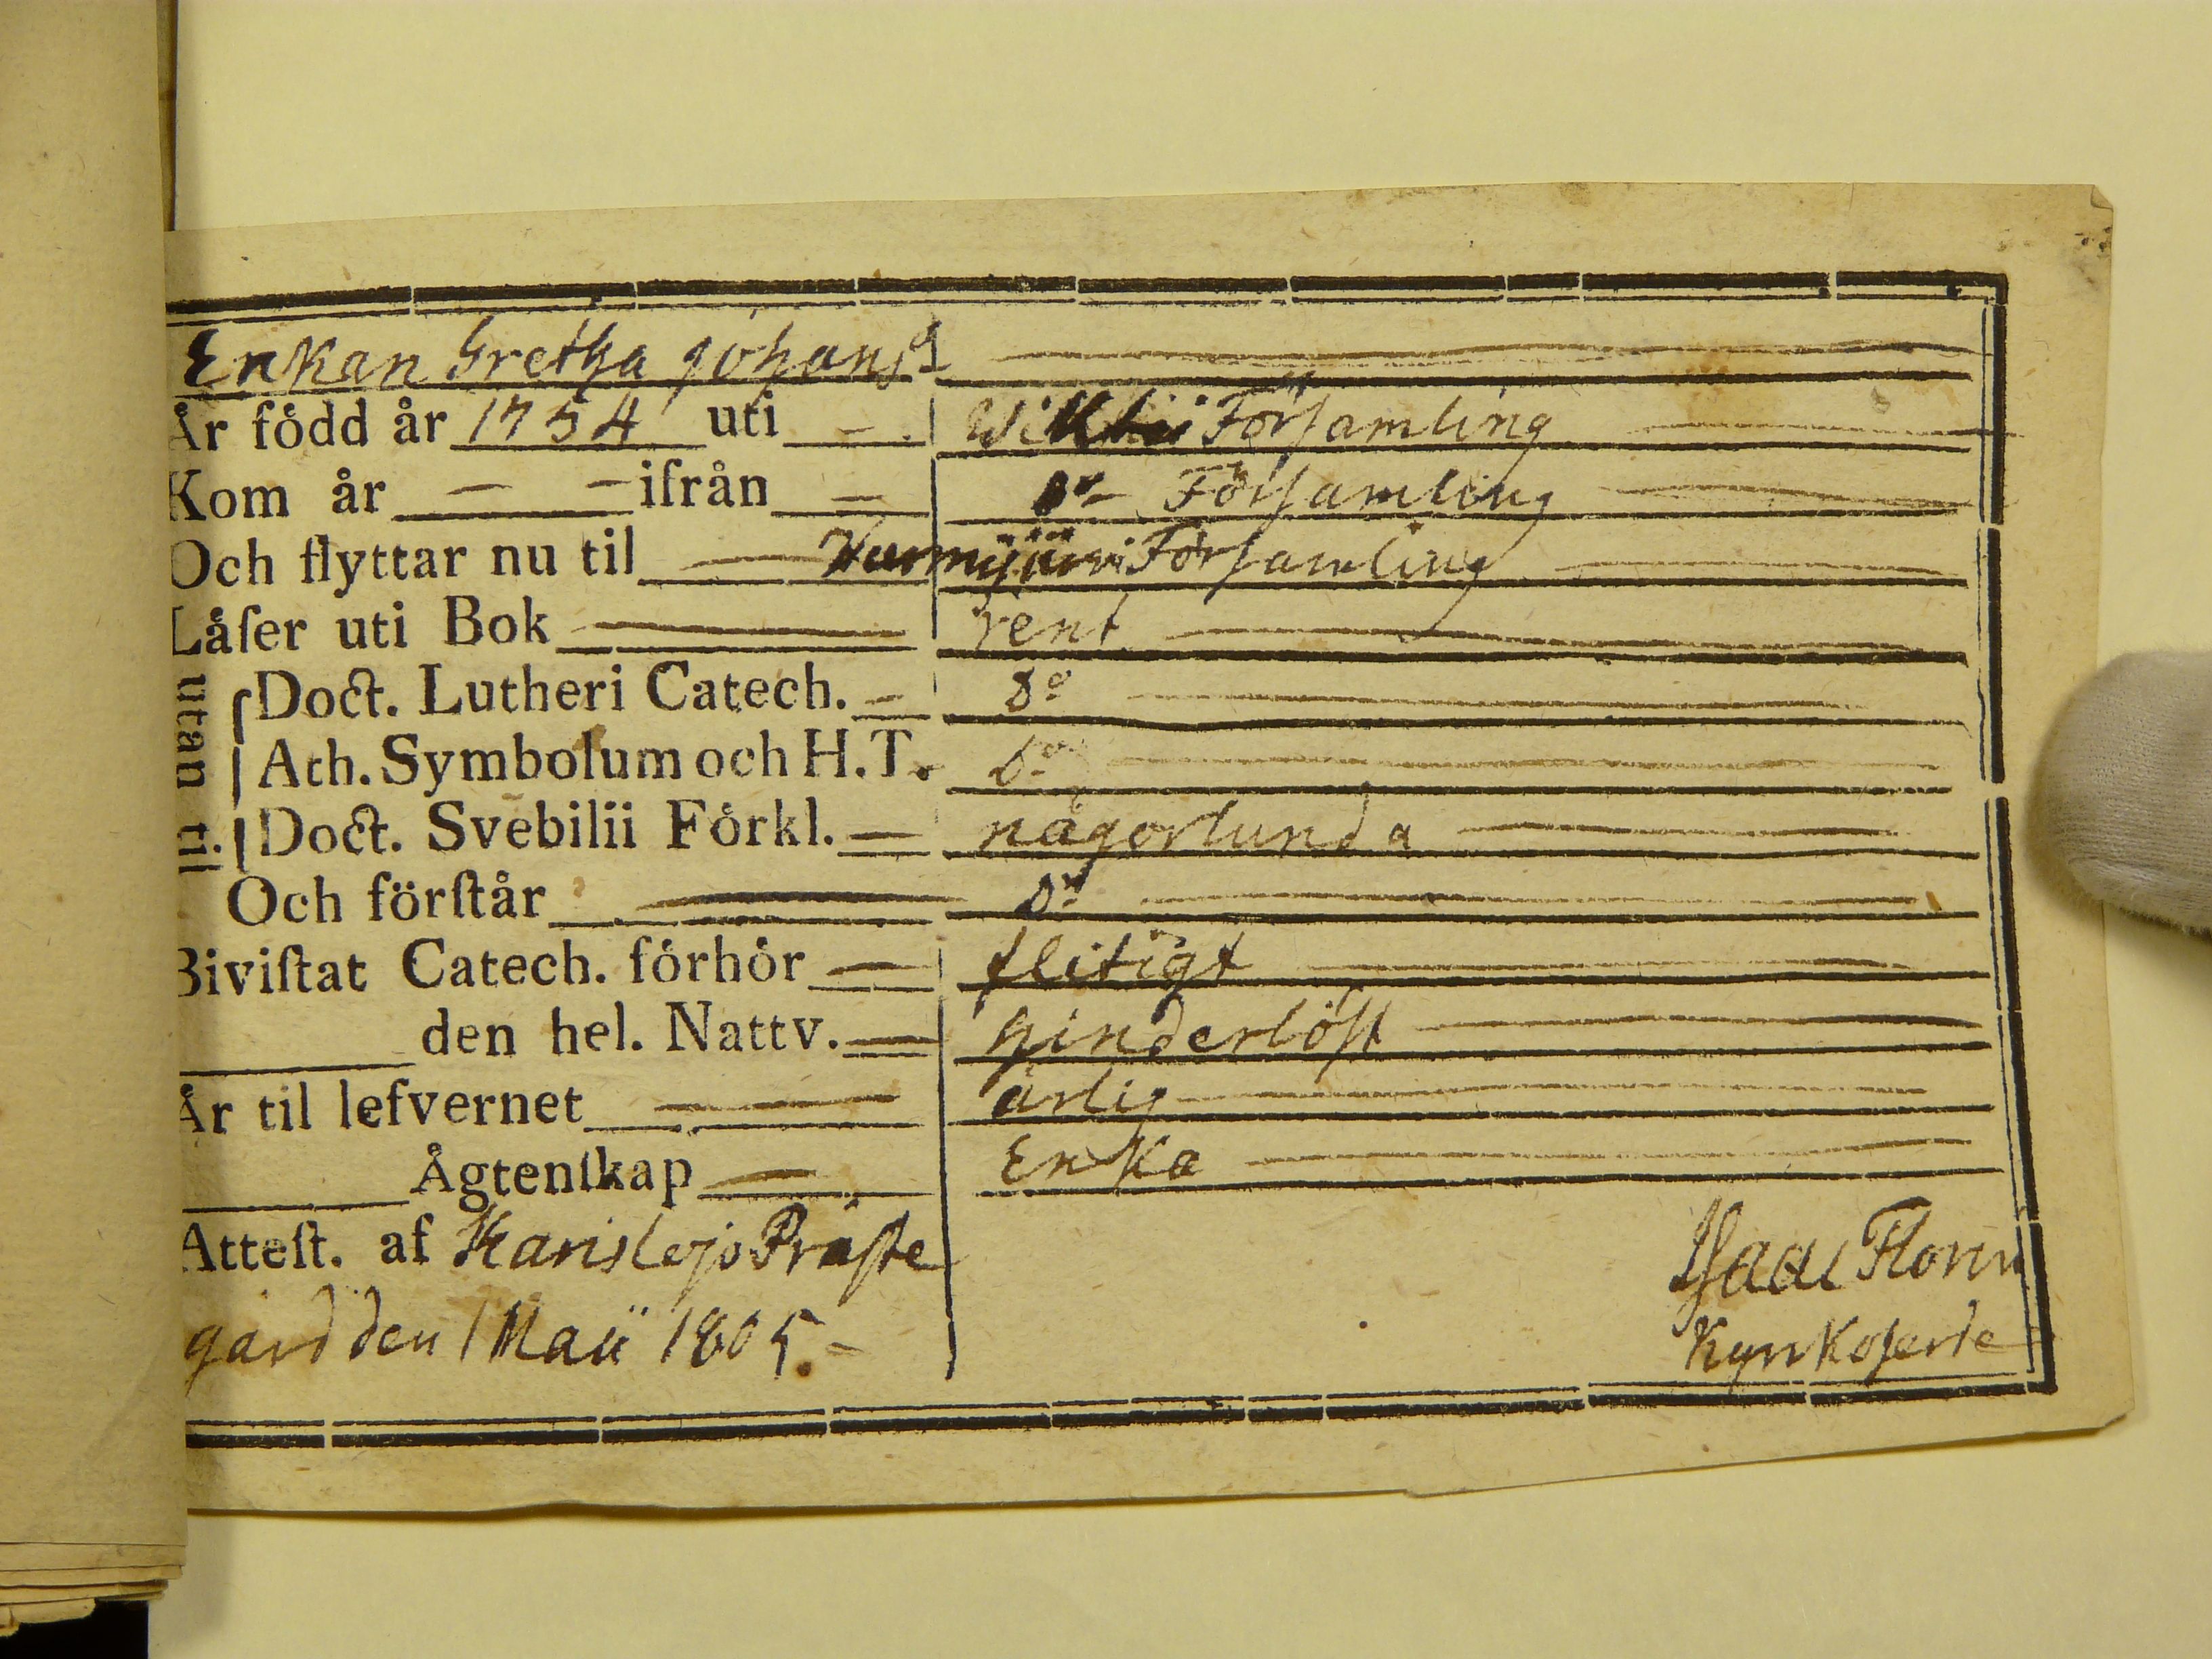 Enkan Gretha Johansd
Är född år 1754 uti Församling
Kom år ifrån do Församling
Och flyttar nu til Nurmijärvi Församling
Låser uti Bok rent
utan til.
Doct. Lutheri Catech. do
Ath. Symbolum och H.T. do
Doct. Svebilii Förkl. någorlunda
Och förstår do
Bivistat Catech. förhör flitigt
den hel. Nattv. hinderlöst
Är til lefvernet ärlig
Ågtenskap Enka
Attest. af Karislojo Präste
gård den 1 Maii 1805. Isaac
Kyrkoherde